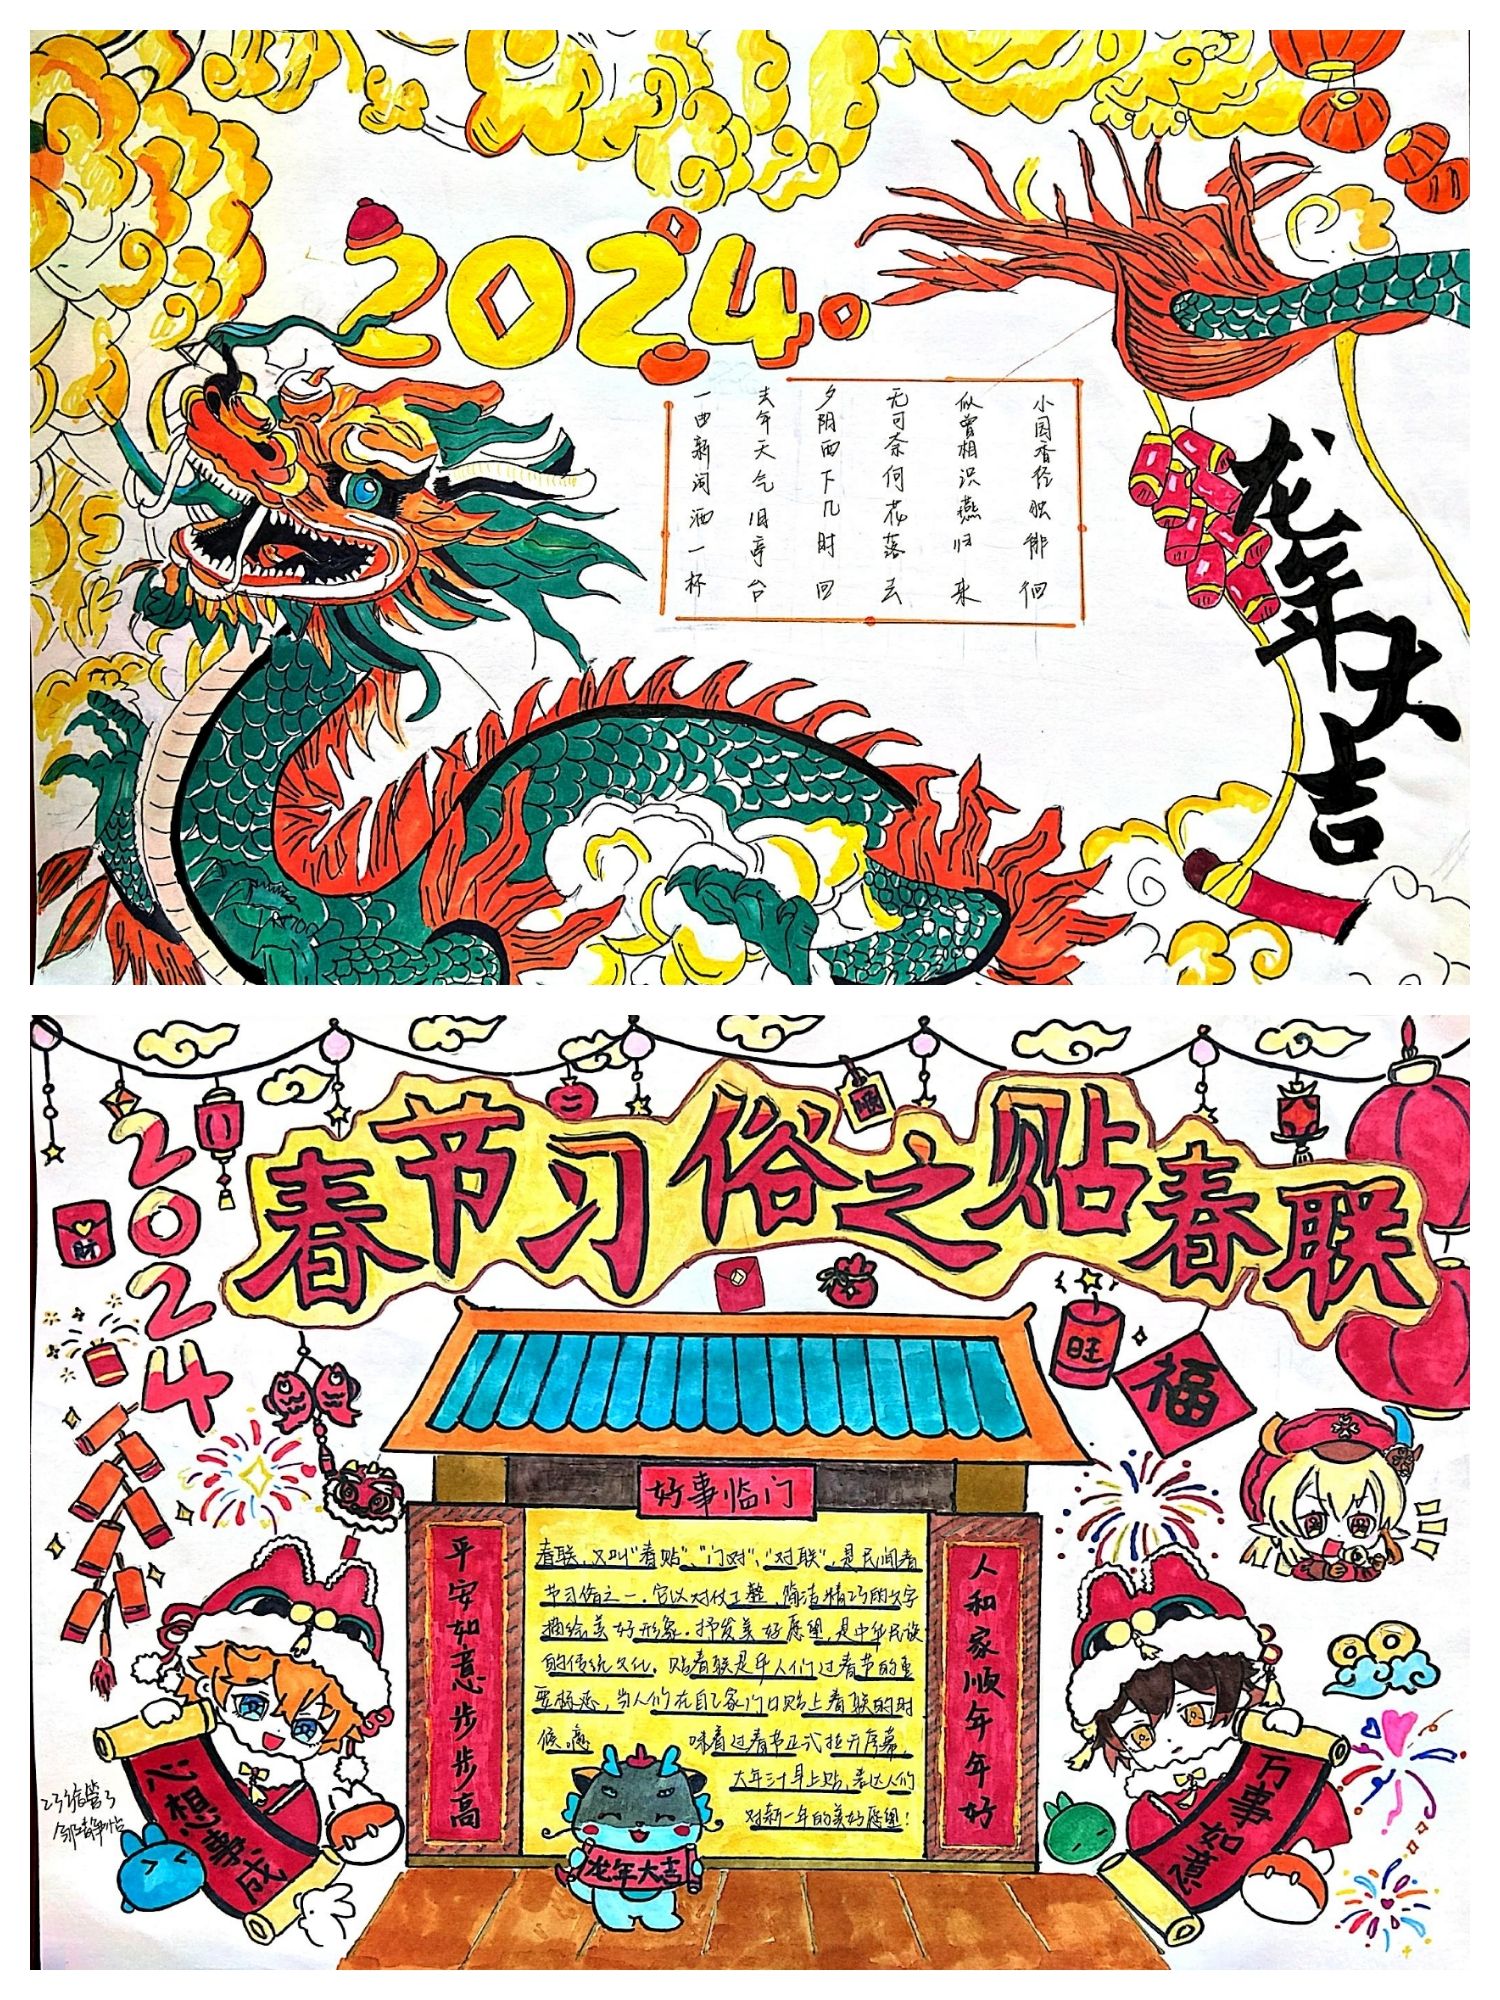 2024
一曲新词酒一杯
去年天气旧亭台
夕阳西下几时回
无可奈何花落去
似曾相识燕归来
小园香径独徘徊
龙年大吉
春节习俗之贴春联
2024
顺
财
旺
福
好事临门
平安如意步步高
春联，又叫"春贴"、"门对"、"对联"，是民间春
节习俗之一。它以对仗工整、简洁精巧的文字
描绘美好形象，抒发美好愿望，是中华民族
的传统文化。贴春联是华人们过春节的重
要标志，当人们在自己家门口贴上春联的时
候，意味着过春节正式拉开序幕，
大年三十早上贴，表达人们
对新一年的美好愿望！
人和家顺年年好
龙年大吉
心想事成
万事如意
23信管3
邹静怡